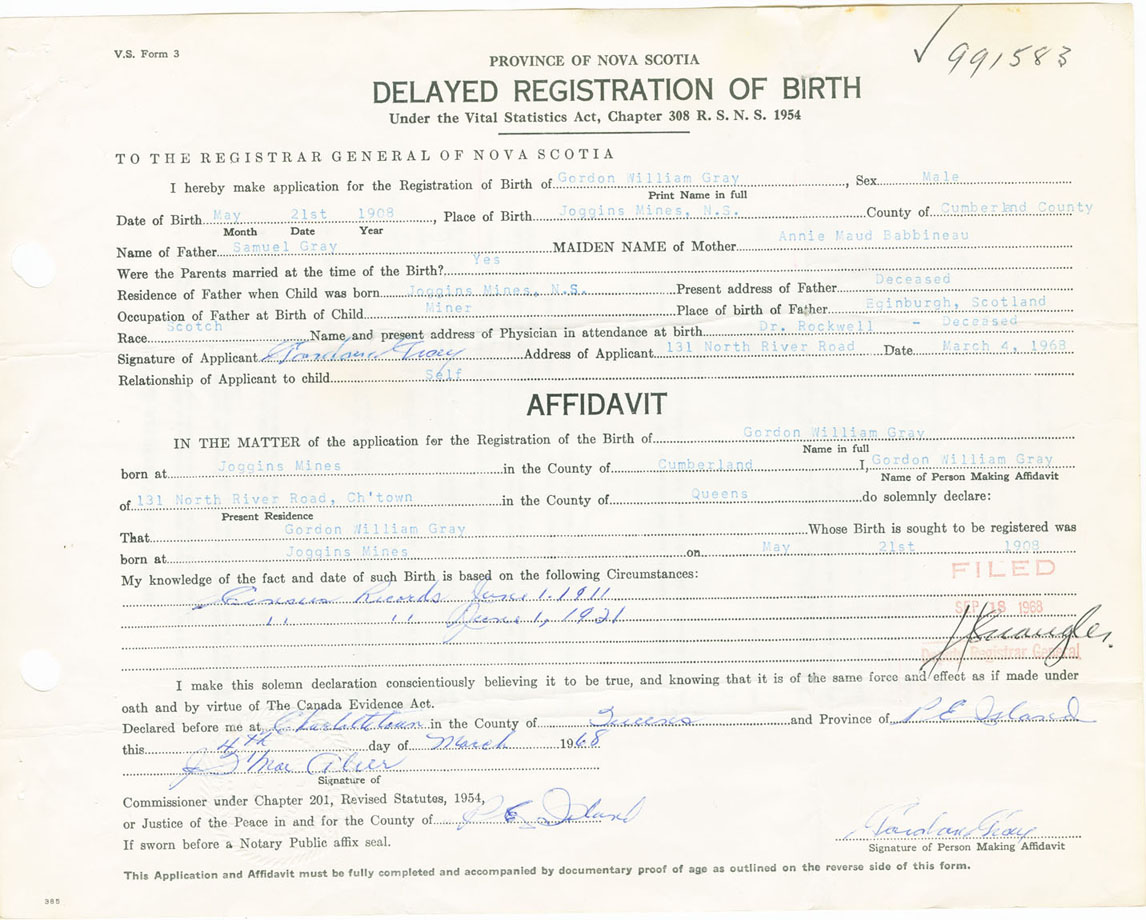 V.S. Form 3
991583
PROVINCE OF NOVA SCOTIA
DELAYED REGISTRATION OF BIRTH
Under the Vital Statistics Act, Chapter 308 R. S. N. S. 1954
TO THE REGISTRAR GENERAL OF NOVA SCOTIA
I hereby make application for the Registration of Birth of Gordon William Gray, Sex Male
Print Name in full
Date of Birth May 21st 1908, Place of Birth Joggins Mines, N.S. County of Cumberland County
Month Date Year
Name of Father Samuel Gray MAIDEN NAME of Mother Annie Maud Babbineau
Were the Parents married at the time of the Birth? Yes
Residence of Father when Child was born Joggins Mines, N.S. Present address of Father Deceased
Occupation of Father at Birth of Child Miner Place of birth of Father Eginburgh, Scotland
Race Scotch Name and present address of Physician in attendance at birth Dr. Rockwell - Deceased
Signature of Applicant Gordon Gray Address of Applicant 131 North River Road Date March 4, 1968
Relationship of Applicant to child Self
AFFIDAVIT
IN THE MATTER of the application for the Registration of the Birth of Gordon William Gray
Name in full
born at Joggins Mines in the County of Cumberland I, Gordon William Gray
Name of Person Making Affidavit
of 131 North River Road, Ch'town in the County of Queens do solemnly declare:
Present Residence
That Gordon William Gray Whose Birth is sought to be registered was
born at Joggins Mines on May 21st 1908
My knowledge of the fact and date of such Birth is based on the following Circumstances:
FILED
Census Records June 1. 1911
SEP 18 1968
" " June 1, 1921
Deputy Registrar General
I make this solemn declaration conscientiously believing it to be true, and knowing that it is of the same force and effect as if made under
oath and by virtue of The Canada Evidence Act.
Declared before me at Charlottetown in the County of Queens and Province of P E Island
this 4th day of March 1968
Signature of
Commissioner under Chapter 201, Revised Statutes, 1954,
or Justice of the Peace in and for the County of P E Island
Gordon Gray
If sworn before a Notary Public affix seal.
Signature of Person Making Affidavit
This Application and Affidavit must be fully completed and accompanied by documentary proof of age as outlined on the reverse side of this form.
385